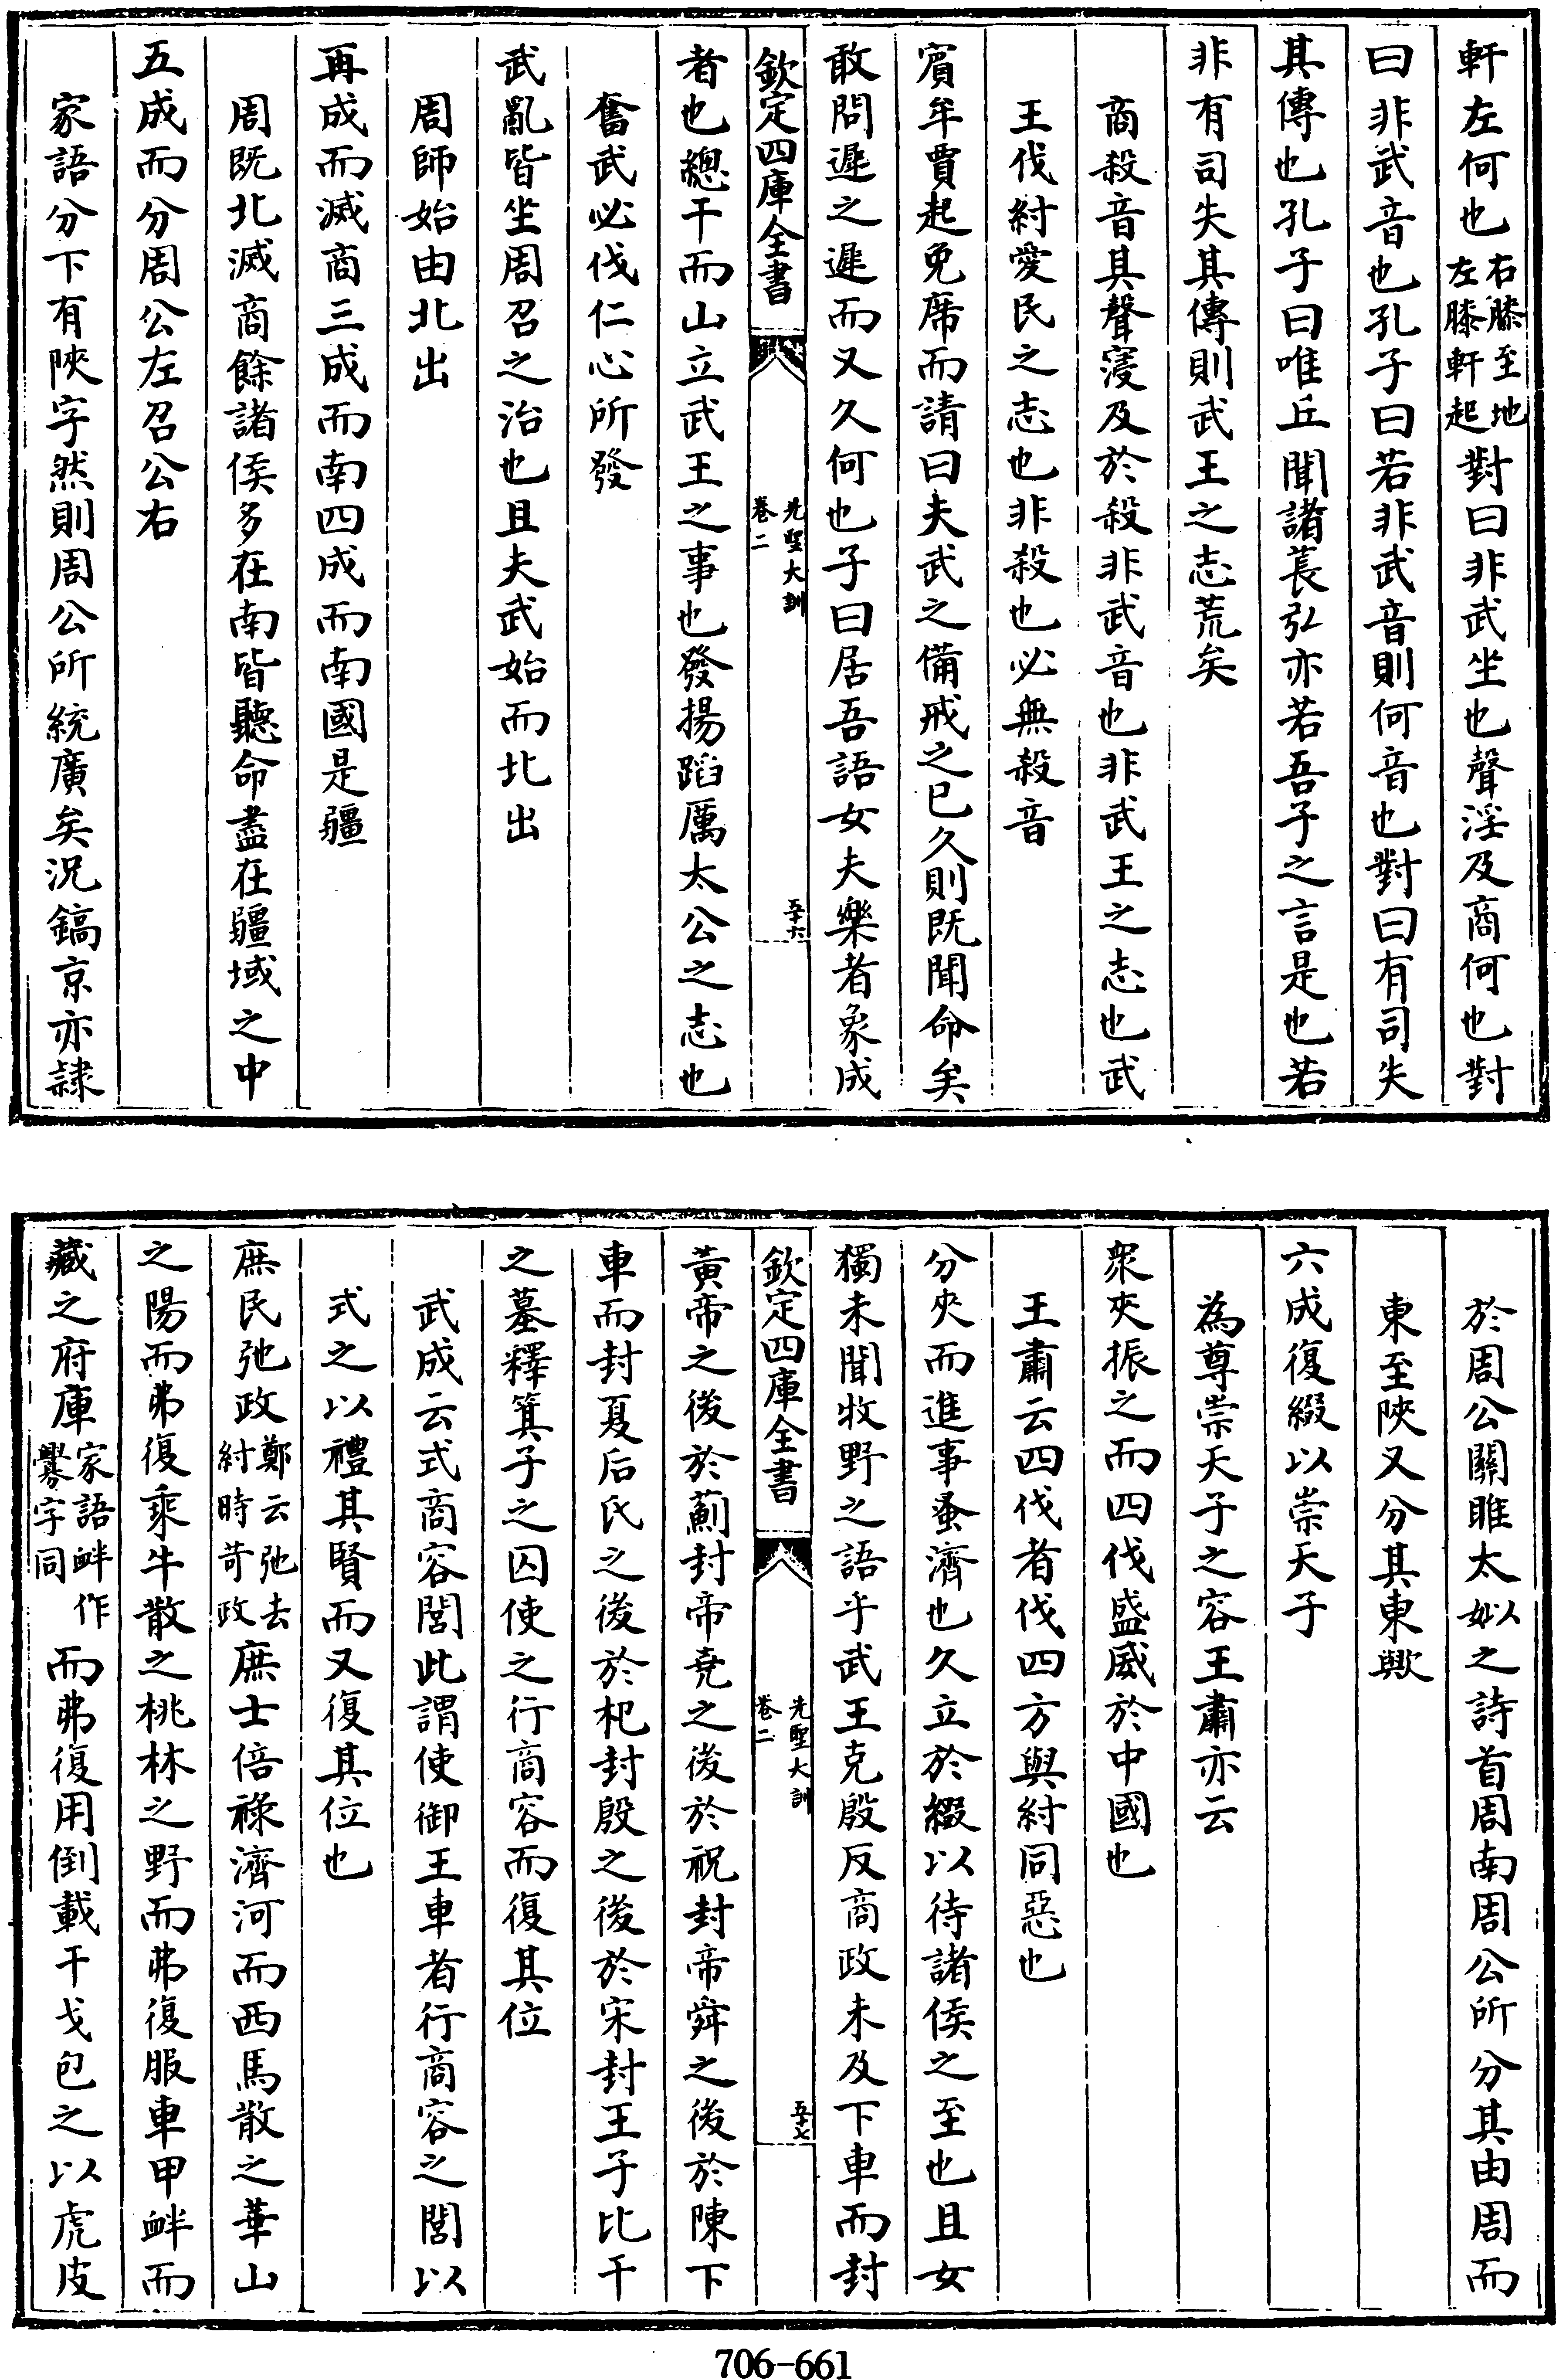 軒左何也右膝至地左膝軒起對曰非武坐也聲淫及商何也對
曰非武音也孔子曰若非武音則何音也對曰有司失
其傳也孔子曰唯丘聞諸萇弘亦若吾子之言是也若
非有司失其傳則武王之志荒矣
商殺音其聲寖及於殺非武音也非武王之志也武
王伐紂愛民之志也非殺也必無殺音
賓牟賈起免席而請曰夫武之備戒之已久則既聞命矣
敢問遲之遲而又久何也子曰居吾語女夫樂者象成
欽定四庫全書
先聖大訓
卷二
五十六
者也總干而山立武王之事也發揚蹈厲太公之志也
奮武必伐仁心所發
武亂皆坐周召之治也且夫武始而北出
周師始由北出
再成而滅商三成而南四成而南國是疆
周既北滅商餘諸侯多在南皆聽命盡在疆域之中
五成而分周公左召公右
家語分下有陜字然則周公所統廣矣況鎬京亦隸
於周公關雎太姒之詩首周南周公所分其由周而
東至陜又分其東歟
六成復綴以崇天子
為尊崇天子之容王肅亦云
眾夾振之而四伐盛威於中國也
王肅云四伐者伐四方與紂同惡也
分夾而進事蚤濟也久立於綴以待諸侯之至也且女
獨未聞牧野之語乎武王克殷反商政未及下車而封
欽定四庫全書
先聖大訓
卷二
五十七
黃帝之後於薊封帝堯之後於祝封帝舜之後於陳下
車而封夏后氏之後於杞封殷之後於宋封王子比干
之墓釋箕子之囚使之行商容而復其位
武成云式商容閭此謂使御王車者行商容之閭以
式之以禮其賢而又復其位也
庶民弛政鄭云弛去紂時苛政庶士倍祿濟河而西馬散之華山
之陽而弗復乘牛散之桃林之野而弗復服車甲衅而
藏之府庫家語衅作釁字同而弗復用倒載干戈包之以虎皮
706-661